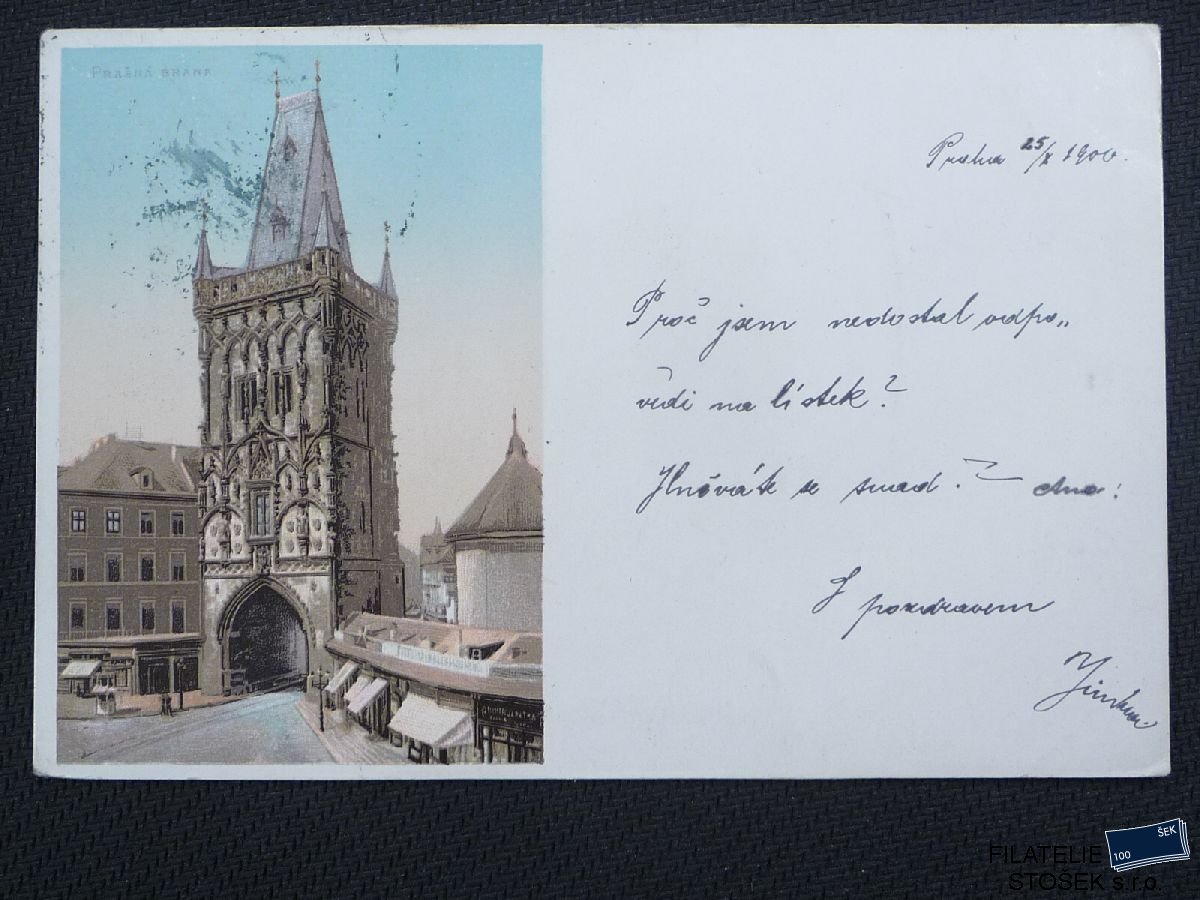 PRAŠNÁ BRANA
Praha 25/X 1900.
Proč jsem nedostal odpo„
vědi na lístek?
Hněváte se snad?
S pozdravem
ŠEK
100
FILATELIE
STOŠEK s.r.o.